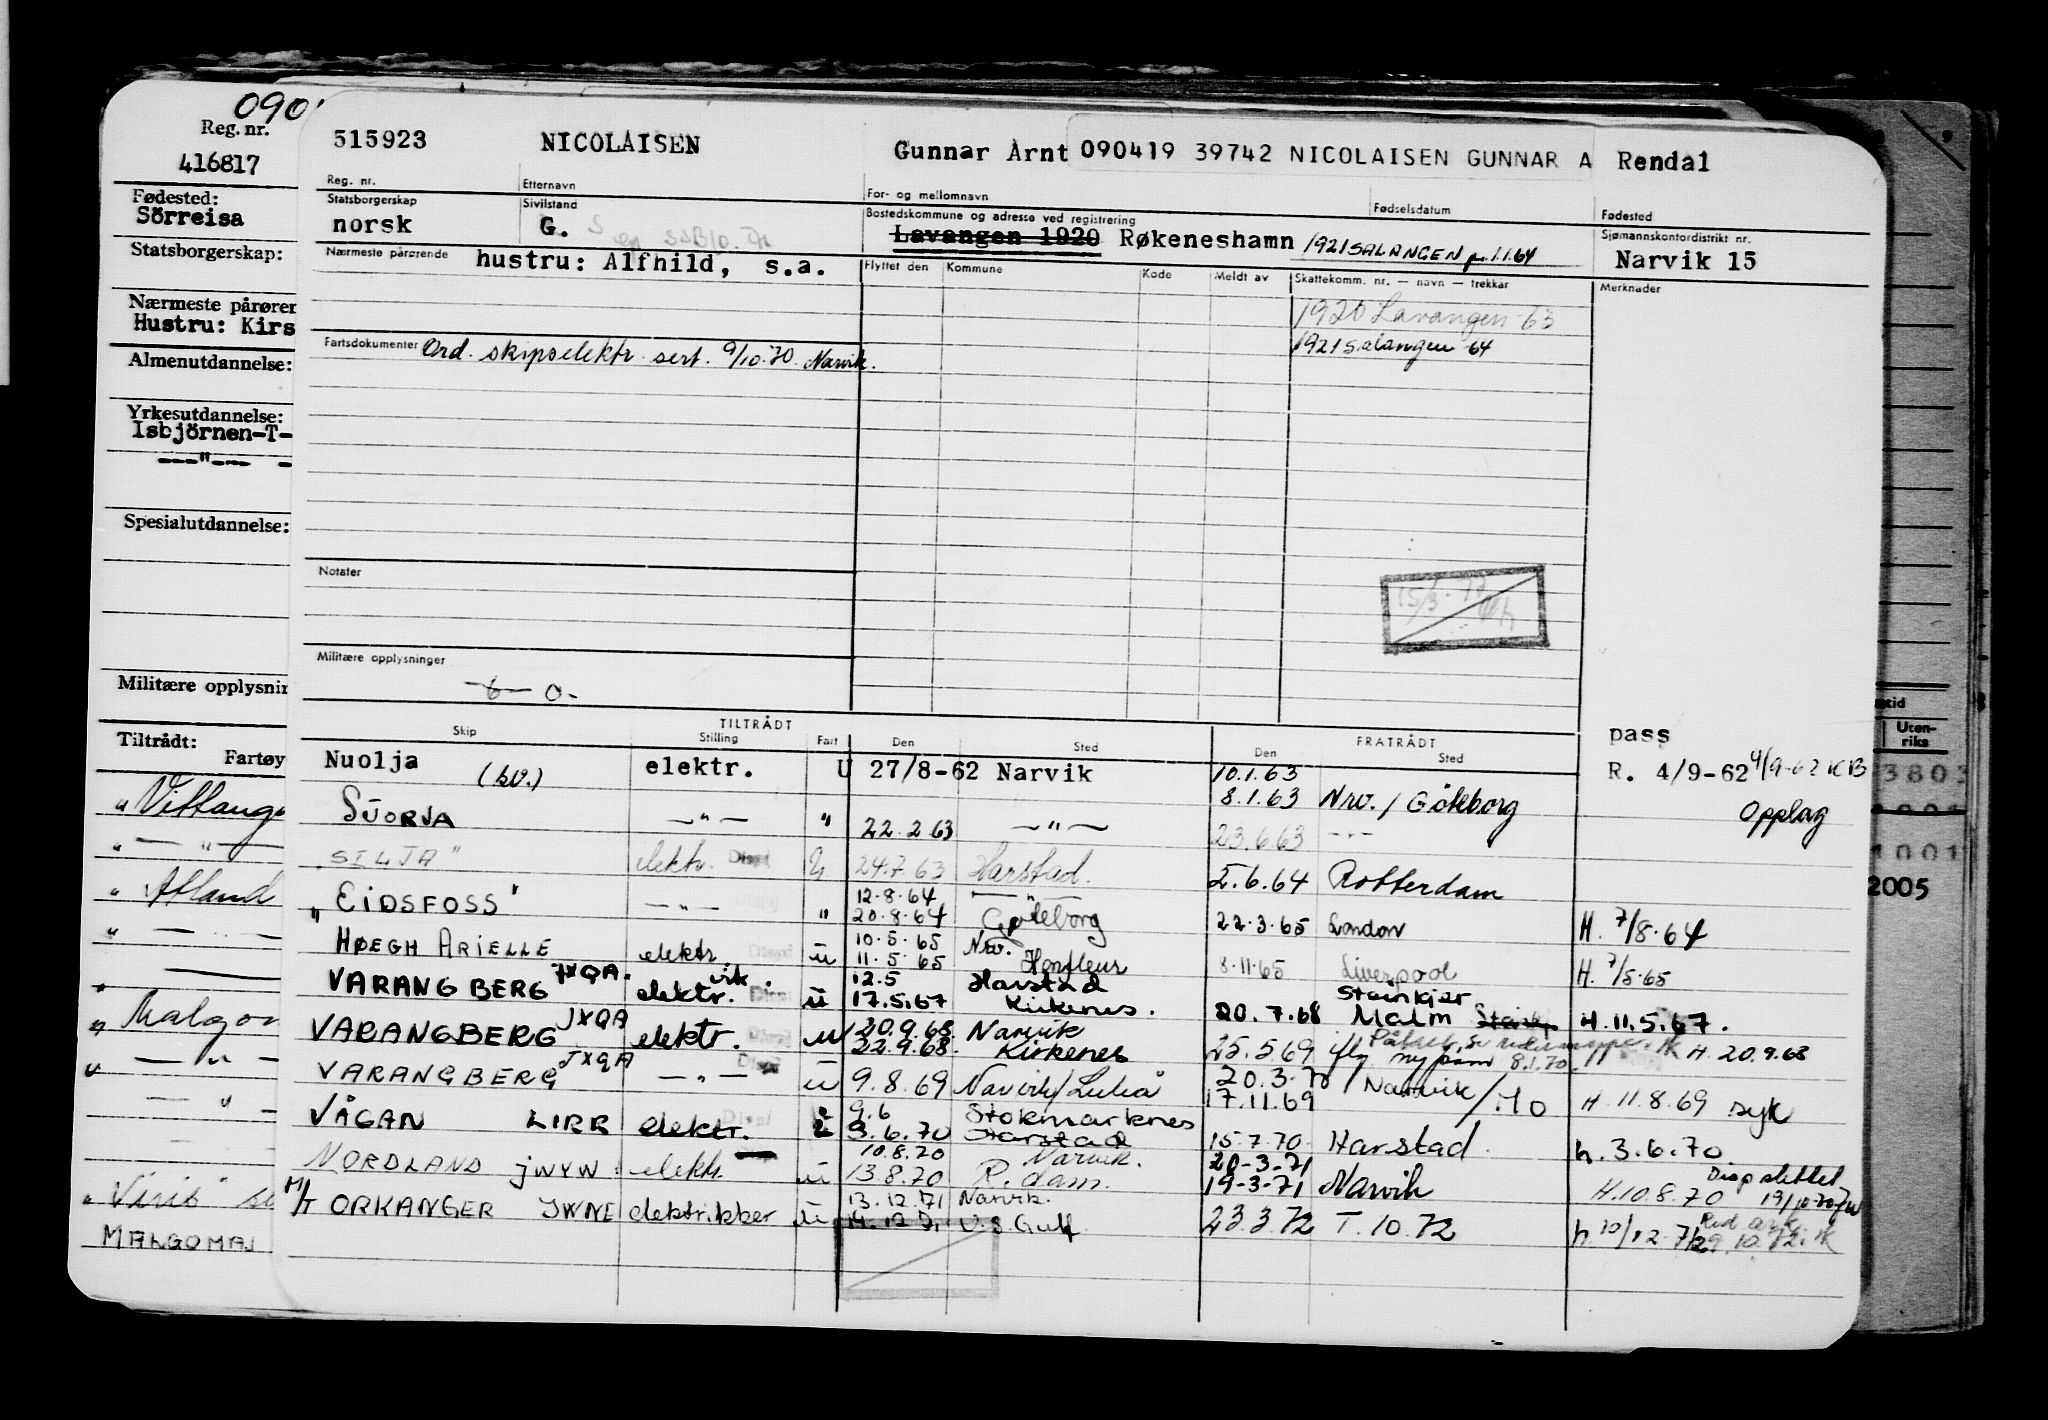 090
Reg. nr.
416817
Fødested:
Sörreisa
Statsborgerskap:
Nærmeste pårører
Hustru: Kirs
Almenutdannelse:
Yrkesutdannelse:
Isbjörnen-T-
---"---
Spesialutdannelse:
Militære opplysnin
Tiltrådt:
Fartøy
" Vittang
" — " —
" Atland
" — " —
" Malgom
" — " —
" — " —
" Viris"
MALGOMAJ
515923 NICOLAISEN Gunnar Arnt 090419 39742 NICOLAISEN GUNNAR A Rendal
Reg. nr. Etternavn For- og mellomnavn Fødselsdatum Fødested
Statsborgerskap Sivilstand Bostedskommune og adresse ved registrering Sjømannskontordistrikt nr.
norsk G. Lavangen 1920 Røkeneshamn 1921 SALANGEN pr. 1.1.64 Narvik 15
Nærmeste pårørende hustru: Alfhild, s.a. Flyttet den Kommune Kode Meldt av Skattekomm. nr. — navn — trekkar Merknader
1920 Lavangen -63
1921 Salangen -64
Fartsdokumenter Ord. skipselektr. sert. 9/10.70. Narvik.
Notater
Militære opplysninger
-6- 0-
TILTRÅDT FRATRÅDT
Skip Stilling Fart Den Sted Den Sted
pass
Nuolja (sv.) elektr. U 27/8-62 Narvik 10.1.63 R. 4/9-62 4/9-62 KB
8.1.63 Nrv. / Göteborg Opplag
SJORJA — " — " 22.2.63 — " — 23.6.63 — " —
"SILJA" elektr. Disp U 24.7.63 Harstad. 2.6.64 Rotterdam
"EIDSFOSS" — " — " 12.8.64 — " —
20.8.64 Gøteborg 22.3.65 London H. 7/8.64
HØEGH ARIELLE elektr. u 10.5.65 Nrv.
11.5.65 Honfleur 8.11.65 Liverpool H. 7/5.65
VARANGBERG JXQA. elektr. u 12.5 Harstad
17.5.67 Kirkenes. 20.7.68 Steinkjer Malm H. 11.5.67.
VARANGBERG JXQA elektr. u 20.9.68 Narvik
22.9.68. Kirkenes 25.5.69 iflg ny pam 8.1.70. H. 20.9.68
VARANGBERG JXQA — " — u 9.8.69 Narvik/Luleå 20.3.70 Narvik
17.11.69 / Mo H. 11.8.69 syk
VÅGAN LIRR elektr. 9.6 Stokmarknes
3.6.70 Harstad 15.7.70 Harstad. h. 3.6.70
NORDLAND JWYW elektr. u 10.8.70 Narvik. 20-3-71
13.8.70 R.dam. 19-3-71 Narvik H. 10.8.70 Disp slettet
M/T ORKANGER JWNE elektrikker u 13.12.71 Narvik.
14.12.71 U.S Gulf 23.3.72 T. 10.72 h 10/12.71
3803
1001
2005
Uten-
riks